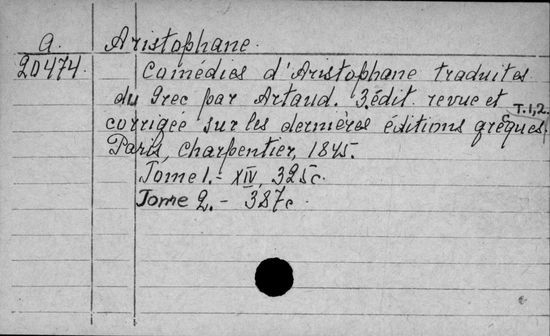 a. Aristophane.
20474. Comédies d'Aristophane traduites
du grec par Artaud. 3.édit. revue et
T.1,2.
corrigée sur les dernières éditions grèques.
Paris, Charpentier, 1845.
Tome 1.- XIV, 325c.
Tome 2.- 387c.